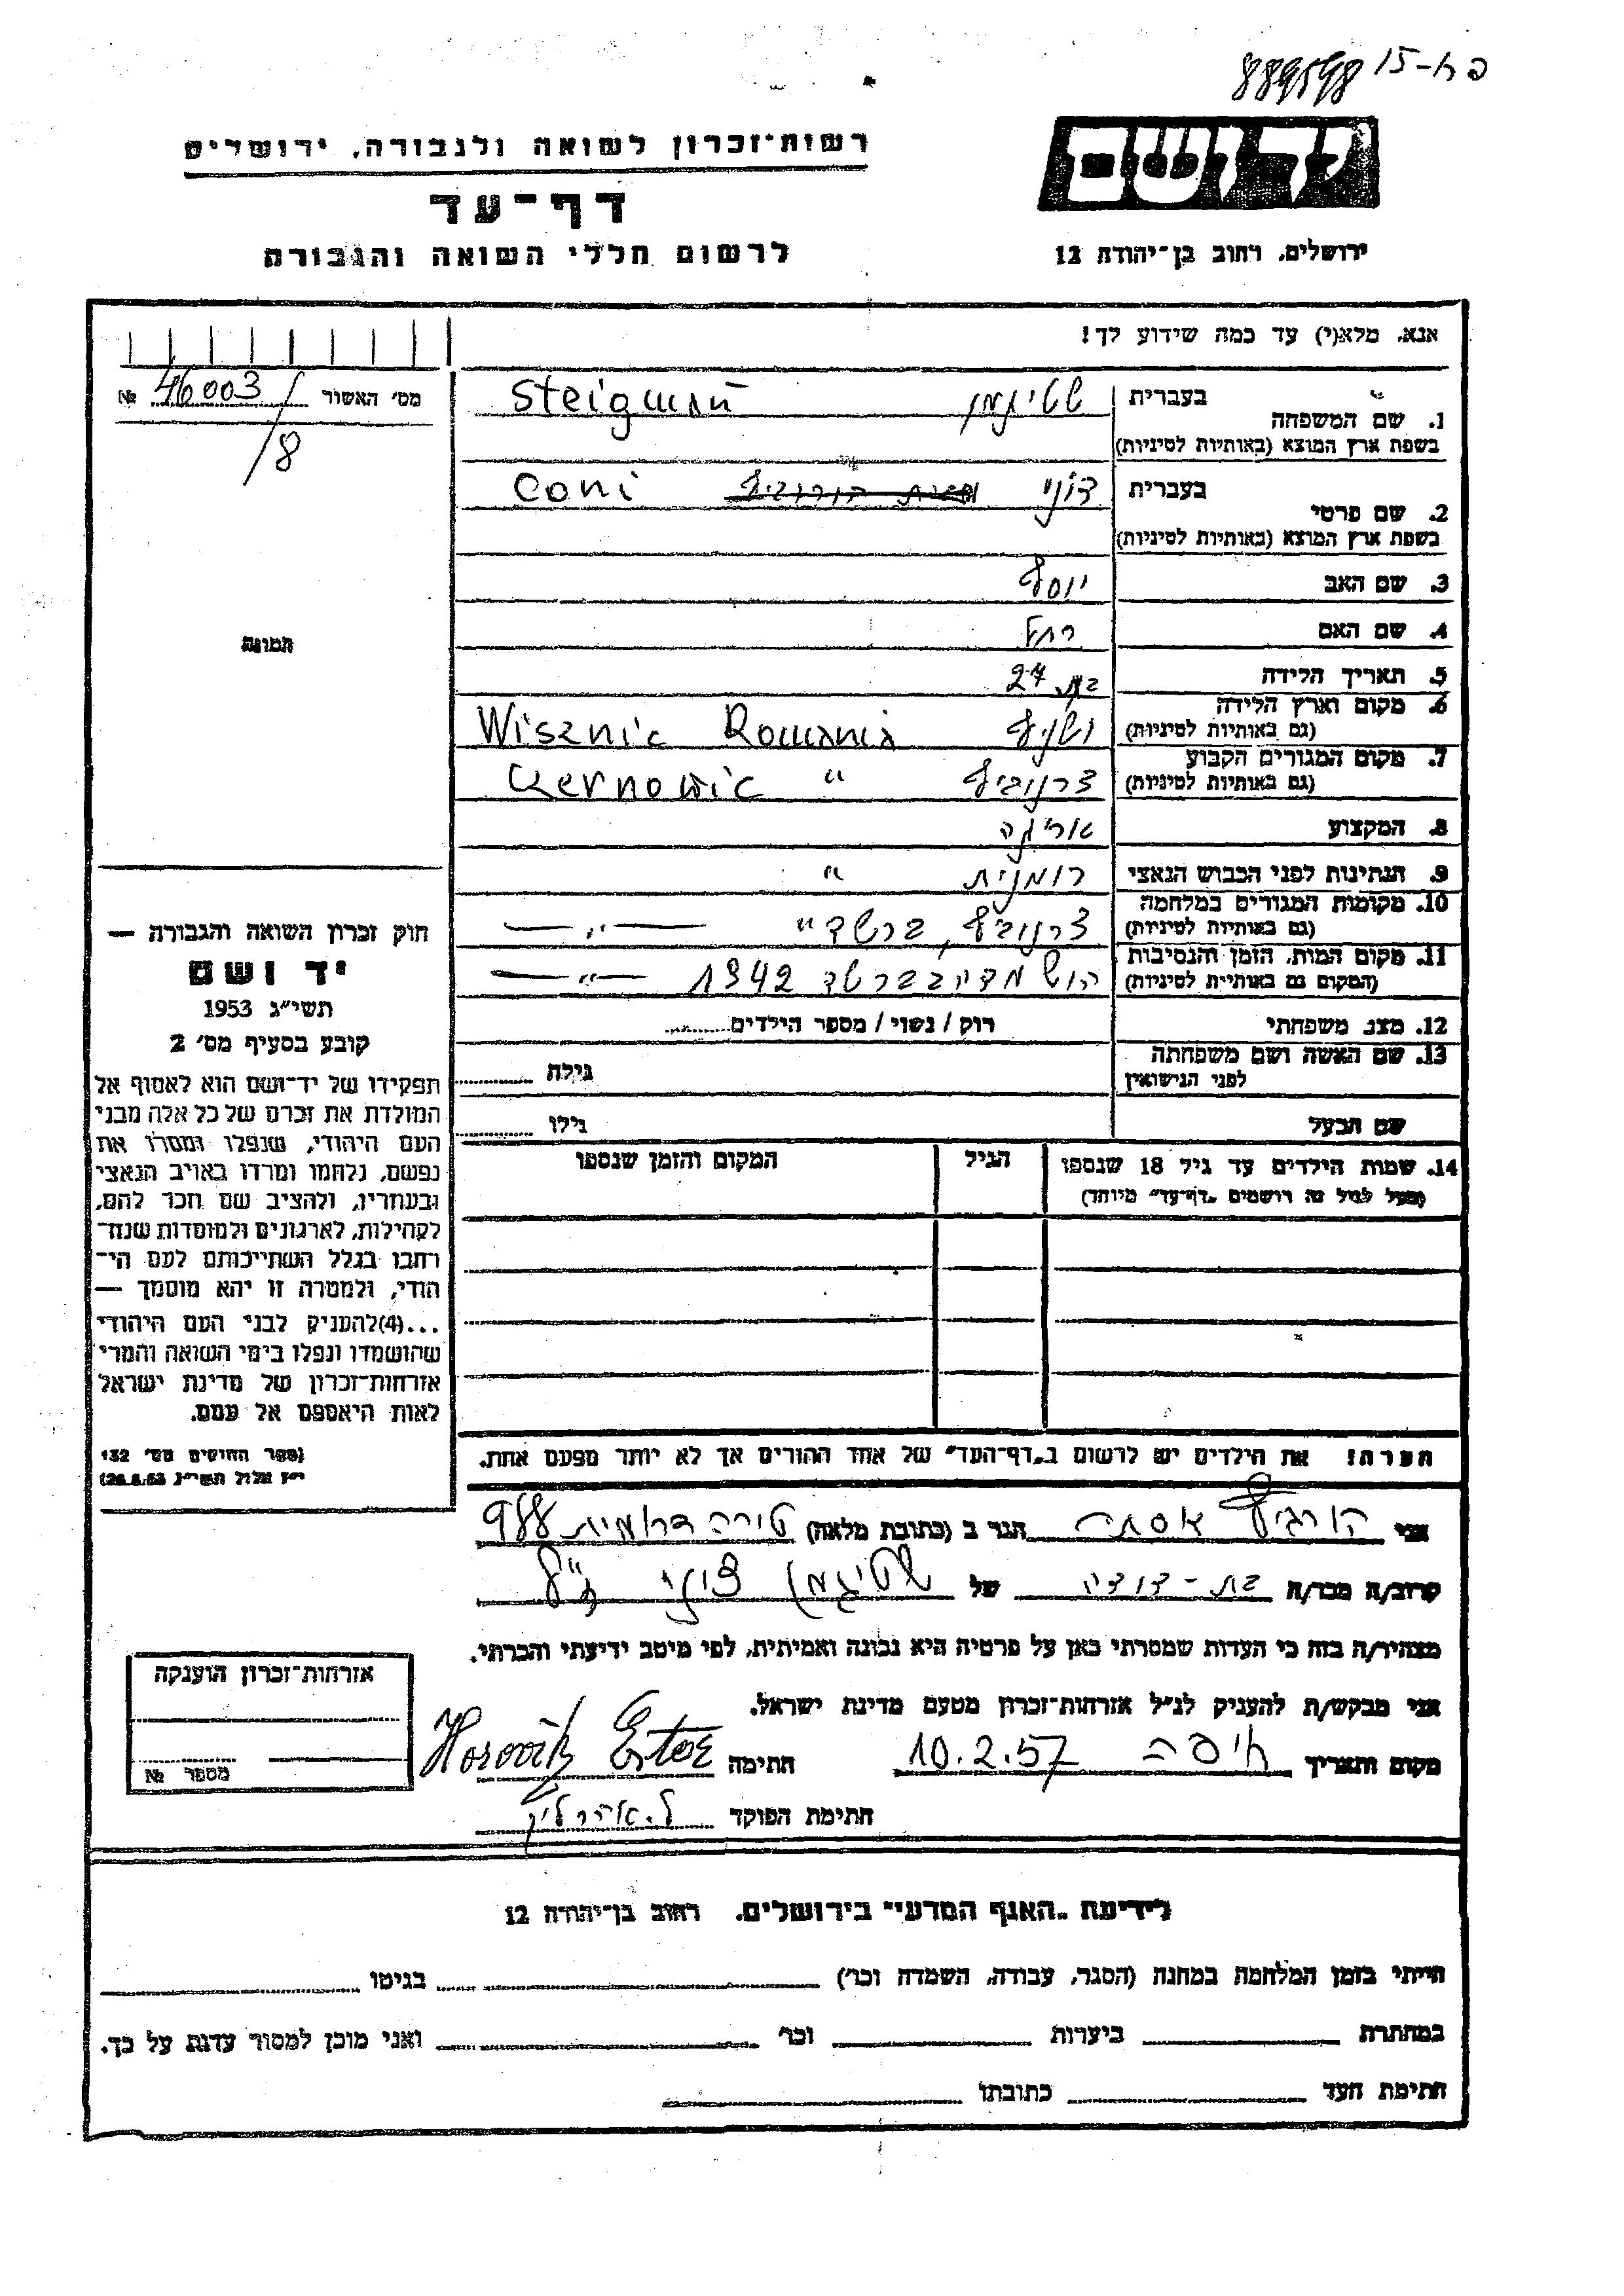 889598 פח-15
יד ושם
רשות-זכרון לשואה ולגבורה, ירושלים
דף-עד
לרשום חללי השואה והגבורה
ירושלים, רחוב בן-יהודה 12
אנא, מלא(י) עד כמה שידוע לך!
מס' האשור 46003/ №
/8
תמונה
1. שם המשפחה בעברית שטיגמן Steigman
בשפת ארץ המוצא (באותיות לטיניות)
2. שם פרטי בעברית צוני Coni
בשפת ארץ המוצא (באותיות לטיניות)
3. שם האב יוסף
4. שם האם רחל
5. תאריך הלידה בת 27
6. מקום וארץ הלידה ושניץ Wisznic Romania
(גם באותיות לטיניות)
7. מקום המגורים הקבוע צרנוביץ " Czernowic
(גם באותיות לטיניות)
8. המקצוע אריגה
9. הנתינות לפני הכבוש הנאצי רומנית "
10. מקומות המגורים במלחמה צרנוביץ, ברשד" —"—
(גם באותיות לטיניות)
11. מקום המות, הזמן והנסיבות הושמדה בברשד 1942 —"—
(המקום גם באותיות לטיניות)
12. מצב משפחתי רוק / נשוי / מספר הילדים
13. שם האשה ושם משפחתה
לפני הנישואין גילה
שם הבעל גילו
14. שמות הילדים עד גיל 18 שנספו הגיל המקום והזמן שנספו
(מעל לגיל זה רושמים „דף-עד" מיוחד)
הערה! את הילדים יש לרשום ב„דף-העד" של אחד ההורים אך לא יותר מפעם אחת.
חוק זכרון השואה והגבורה —
יד ושם
תשי"ג 1953
קובע בסעיף מס' 2
תפקידו של יד-ושם הוא לאסוף אל
המולדת את זכרם של כל אלה מבני
העם היהודי, שנפלו ומסרו את
נפשם, נלחמו ומרדו באויב הנאצי
ובעוזריו, ולהציב שם וזכר להם,
לקהילות, לארגונים ולמוסדות שנח-
רבו בגלל השתייכותם לעם הי-
הודי, ולמטרה זו יהא מוסמך —
...(4) להעניק לבני העם היהודי
שהושמדו ונפלו בימי השואה והמרי
אזרחות-זכרון של מדינת ישראל
לאות היאספם אל עמם.
(ספר החוקים מס' 132
י"ז אלול תשי"ג 28.8.53)
אני הורביץ אסתר הגר ב (כתובת מלאה) טירה דרומית 988
קרוב/ה מכר/ה בת-דודה של שטיגמן צוני ז"ל
מצהיר/ה בזה כי העדות שמסרתי כאן על פרטיה היא נכונה ואמיתית, לפי מיטב ידיעתי והכרתי.
אני מבקש/ת להעניק לנ"ל אזרחות-זכרון מטעם מדינת ישראל.
מקום ותאריך חיפה 10.2.57 חתימה Horovitz Ester
חתימת הפוקד
אזרחות-זכרון הוענקה
מספר №
לידיעת „האגף המדעי" בירושלים, רחוב בן-יהודה 12
הייתי בזמן המלחמה במחנה (הסגר, עבודה, השמדה וכו') בגיטו
במחתרת ביערות וכו' ואני מוכן למסור עדות על כך.
חתימת העד כתובתו